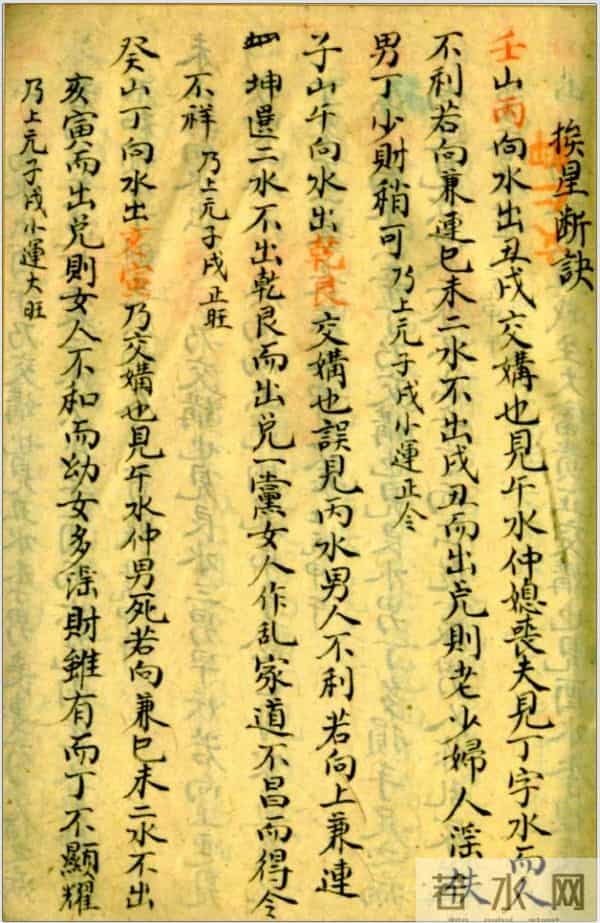 挨星断訣
壬山丙向水出丑戌交媾也見午水仲媳喪夫見丁字水而
不利若向兼連巳未二水不出戌丑而出兑則老少婦人淫
男丁少財稍可乃上元子戌小運正令
子山午向水出乾艮交媾也誤見丙水男人不利若向上兼連
坤選二水不出乾艮而出兑一黨女人作乱家道不昌而得令
不祥乃上元子戌正旺
癸山丁向水出亥寅乃交媾也見午水仲男死若向兼巳未二水不出
亥寅而出兑則女人不和而幼女多淫財雖有而丁不顯耀
乃上元子戌小運大旺
若水网